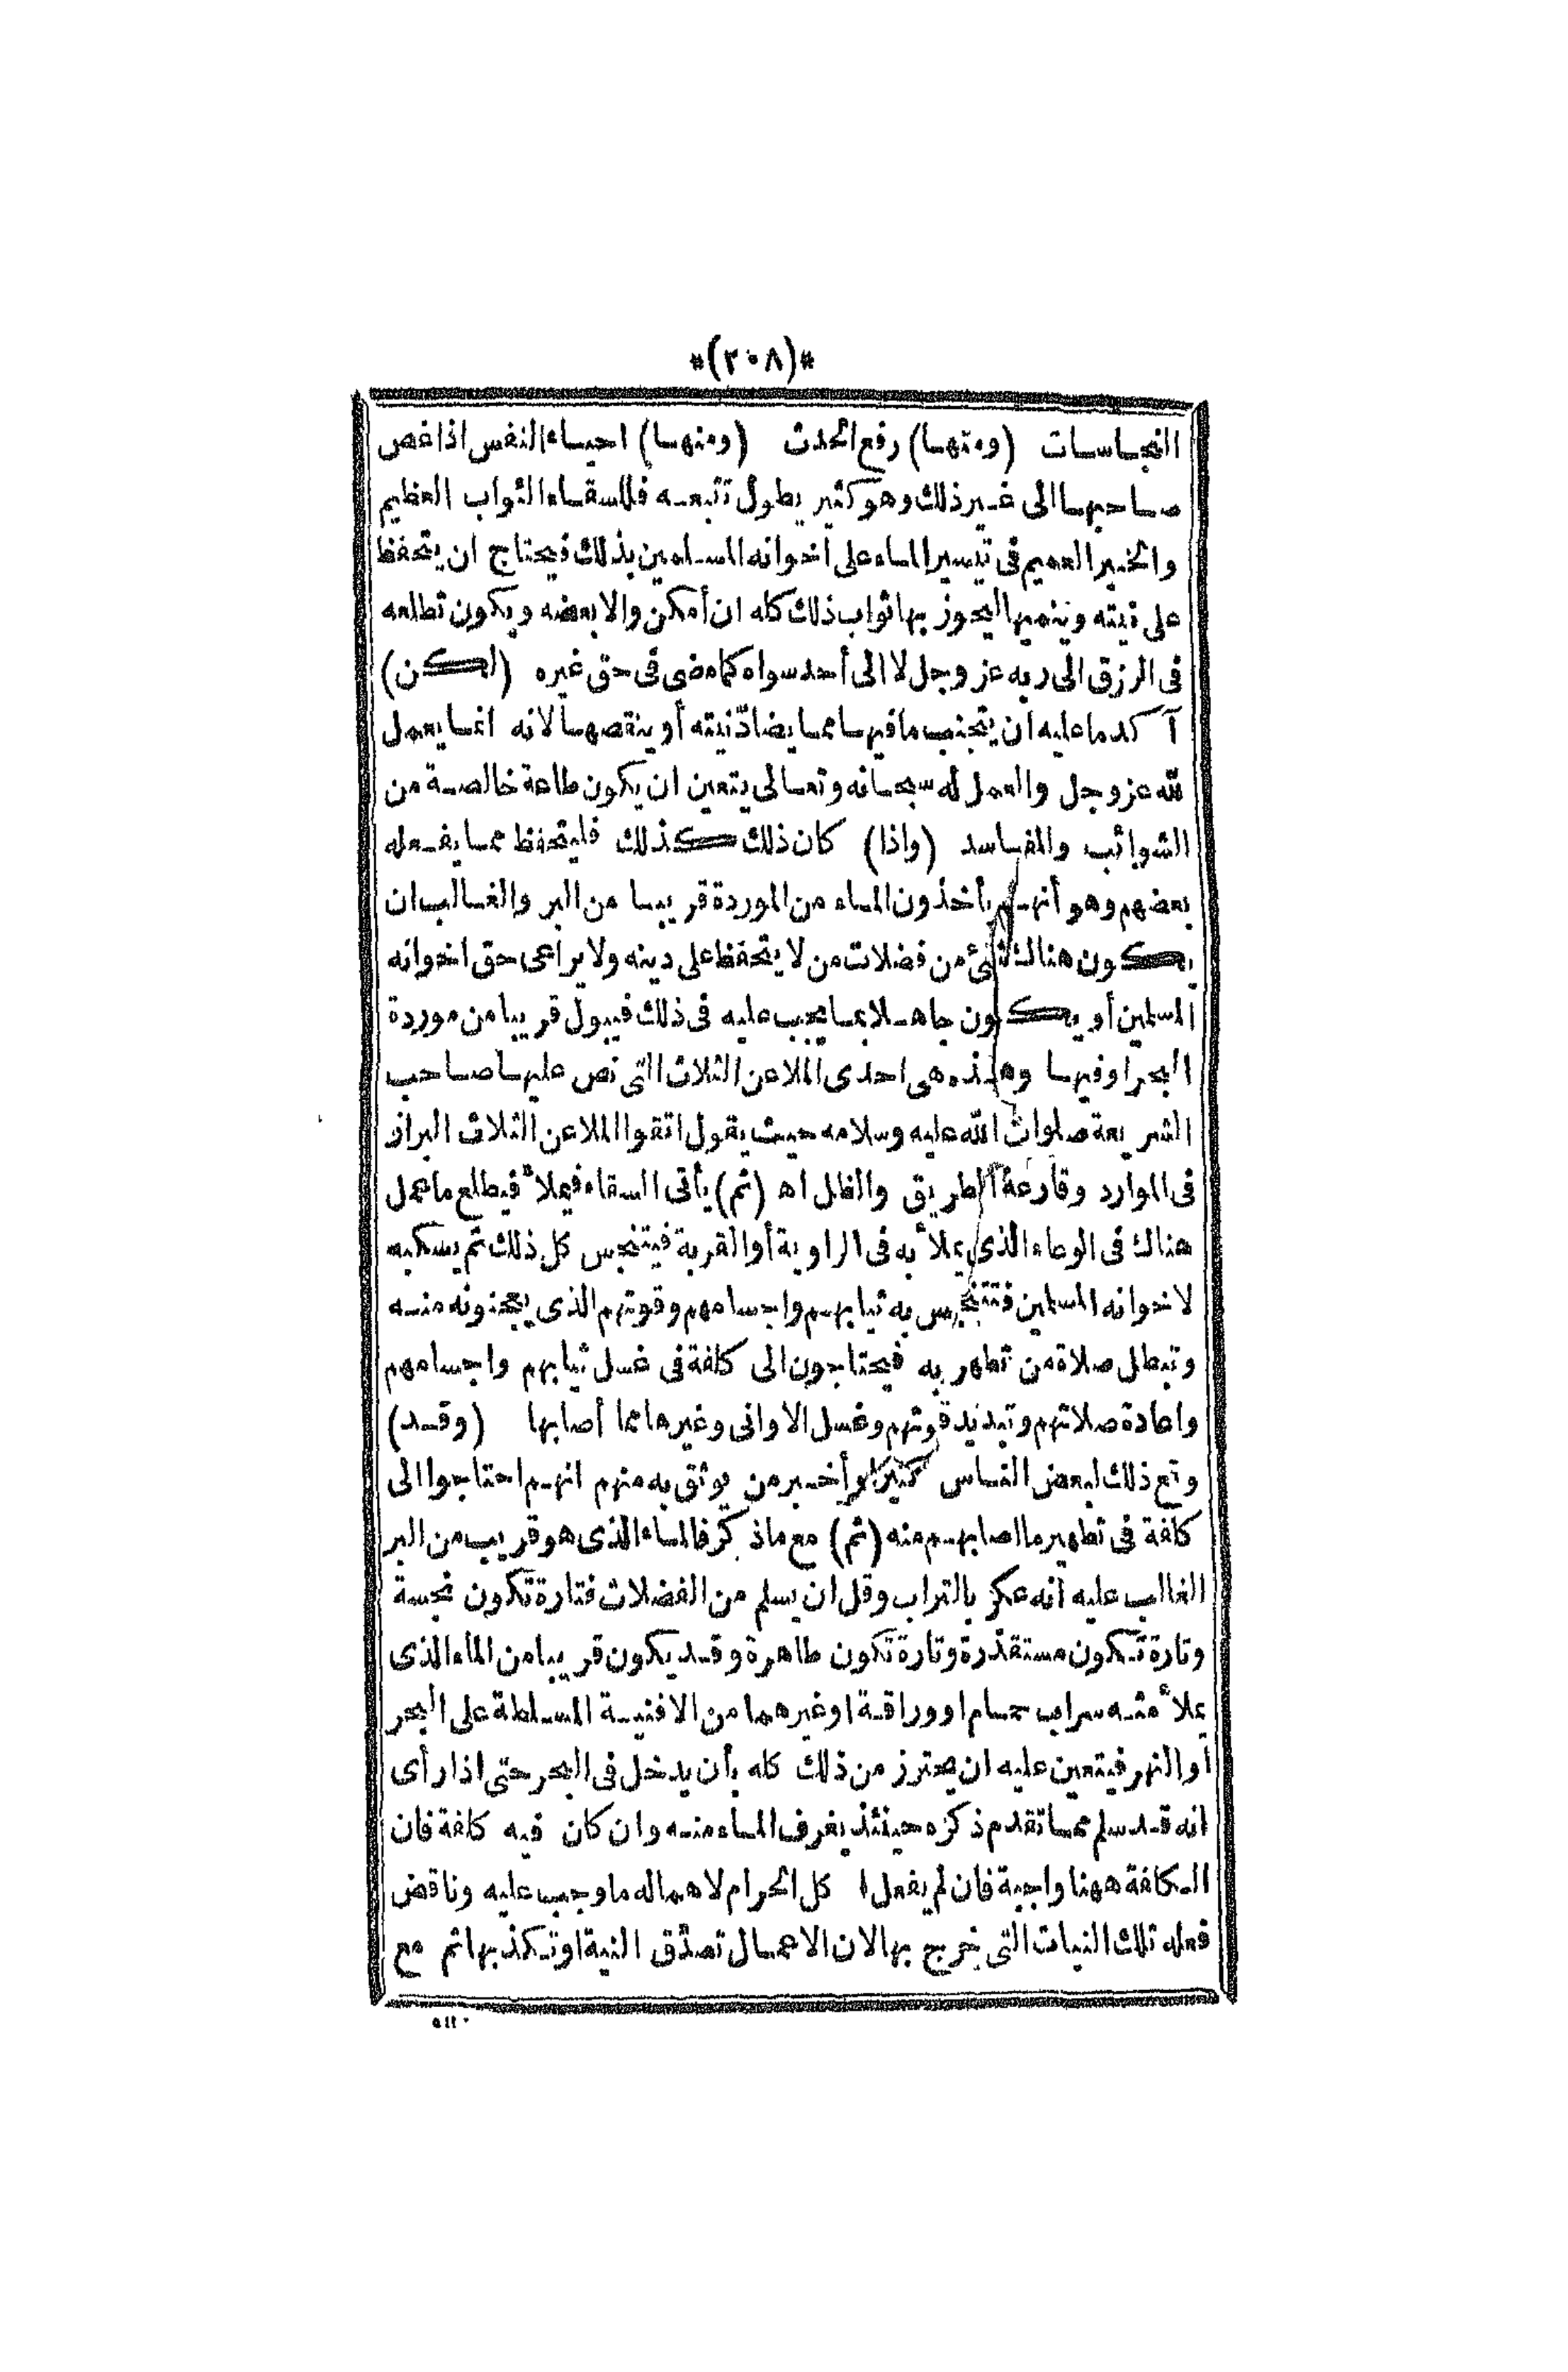 *(٢٠٨)*
النجاسات (ومنها) رفع الحدث (ومنها) احياء النفس اذا غص
صاحبها الى غير ذلك وهو كثير يطول تتبعه فللسقاء الثواب العظيم
والخير العميم فى تيسير الماء على اخوانه المسلمين بذلك فيحتاج ان يتحفظ
على نيته وينميها ليحوز بها ثواب ذلك كله ان أمكن والا بعضه ويكون تطلعه
فى الرزق الى ربه عز وجل لا الى أحد سواه كما مضى فى حق غيره (لكن)
آكد ما عليه ان يتجنب ما فيها مما يضادّ نيته أو ينقصها لانه انما يعمل
لله عز وجل والعمل له سبحانه وتعالى يتعين ان يكون طاعة خالصة من
الشوائب والمفاسد (واذا) كان ذلك كذلك فليتحفظ مما يفعله
بعضهم وهو أنهم يأخذون الماء من الموردة قريبا من البر والغالب ان
يكون هنالك شئ من فضلات من لا يتحفظ على دينه ولا يراعى حق اخوانه
المسلمين أو يكون جاهلا بما يجب عليه فى ذلك فيبول قريبا من موردة
البحر او فيها وهذه هى احدى الملاعن الثلاث التى نص عليها صاحب
الشريعة صلوات الله عليه وسلامه حيث يقول اتقوا الملاعن الثلاث البراز
فى الموارد وقارعة الطريق والظل اه (ثم) يأتى السقاء فيملأ فيطلع ما عمل
هناك فى الوعاء الذى يملأ به فى الراوية أو القربة فيتنجس كل ذلك ثم يسكبه
لاخوانه المسلمين فتتنجس به ثيابهم واجسامهم وقوتهم الذى يعجنونه منه
وتبطل صلاة من تطهر به فيحتاجون الى كلفة فى غسل ثيابهم واجسامهم
واعادة صلاتهم وتبديد قوتهم وغسل الاوانى وغيرها مما أصابها (وقد)
وقع ذلك لبعض الناس كثيرا وأخبر من يوثق به منهم انهم احتاجوا الى
كلفة فى تطهير ما اصابهم منه (ثم) مع ما ذكر فالماء الذى هو قريب من البر
الغالب عليه أنه عكر بالتراب وقل ان يسلم من الفضلات فتارة تكون نجسة
وتارة تكون مستقذرة وتارة تكون طاهرة وقد يكون قريبا من الماء الذى
يملأ منه سراب حمام او وراقة او غيرهما من الافنية المسلطة على البحر
أو النهر فيتعين عليه ان يحترز من ذلك كله بأن يدخل فى البحر حتى اذا رأى
انه قد سلم مما تقدم ذكره حينئذ يغرف الماء منه وان كان فيه كلفة فان
الكلفة ههنا واجبة فان لم يفعل اكل الحرام لاهماله ما وجب عليه وناقض
فعله تلك النيات التى خرج بها لان الاعمال تصدّق النية او تكذبها ثم مع